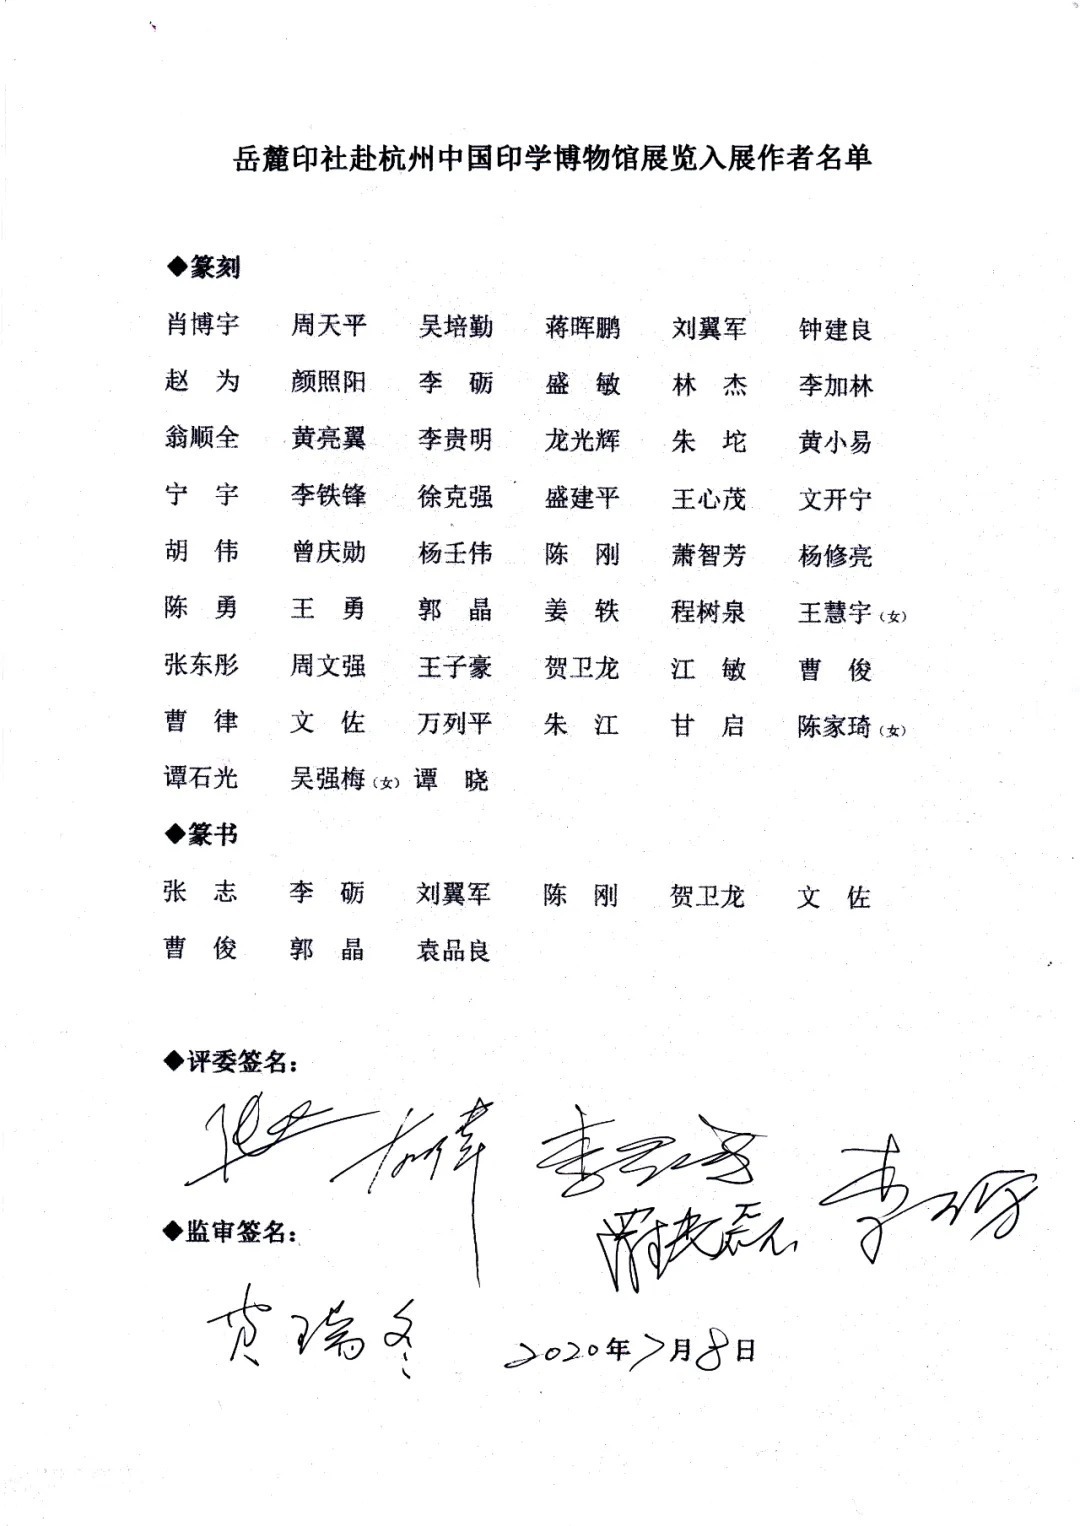 岳麓印社赴杭州中国印学博物馆展览入展作者名单
◆篆刻
肖博宇 周天平 吴培勤 蒋晖鹏 刘翼军 钟建良
赵 为 颜照阳 李 砺 盛 敏 林 杰 李加林
翁顺全 黄亮翼 李贵明 龙光辉 朱 坨 黄小易
宁 宇 李铁锋 徐克强 盛建平 王心茂 文开宁
胡 伟 曾庆勋 杨壬伟 陈 刚 萧智芳 杨修亮
陈 勇 王 勇 郭 晶 姜 轶 程树泉 王慧宇（女）
张东彤 周文强 王子豪 贺卫龙 江 敏 曹 俊
曹 律 文 佐 万列平 朱 江 甘 启 陈家琦（女）
谭石光 吴强梅（女） 谭 晓
◆篆书
张 志 李 砺 刘翼军 陈 刚 贺卫龙 文 佐
曹 俊 郭 晶 袁品良
◆评委签名：
李砺
◆监审签名：
黄瑞冬
2020年7月8日